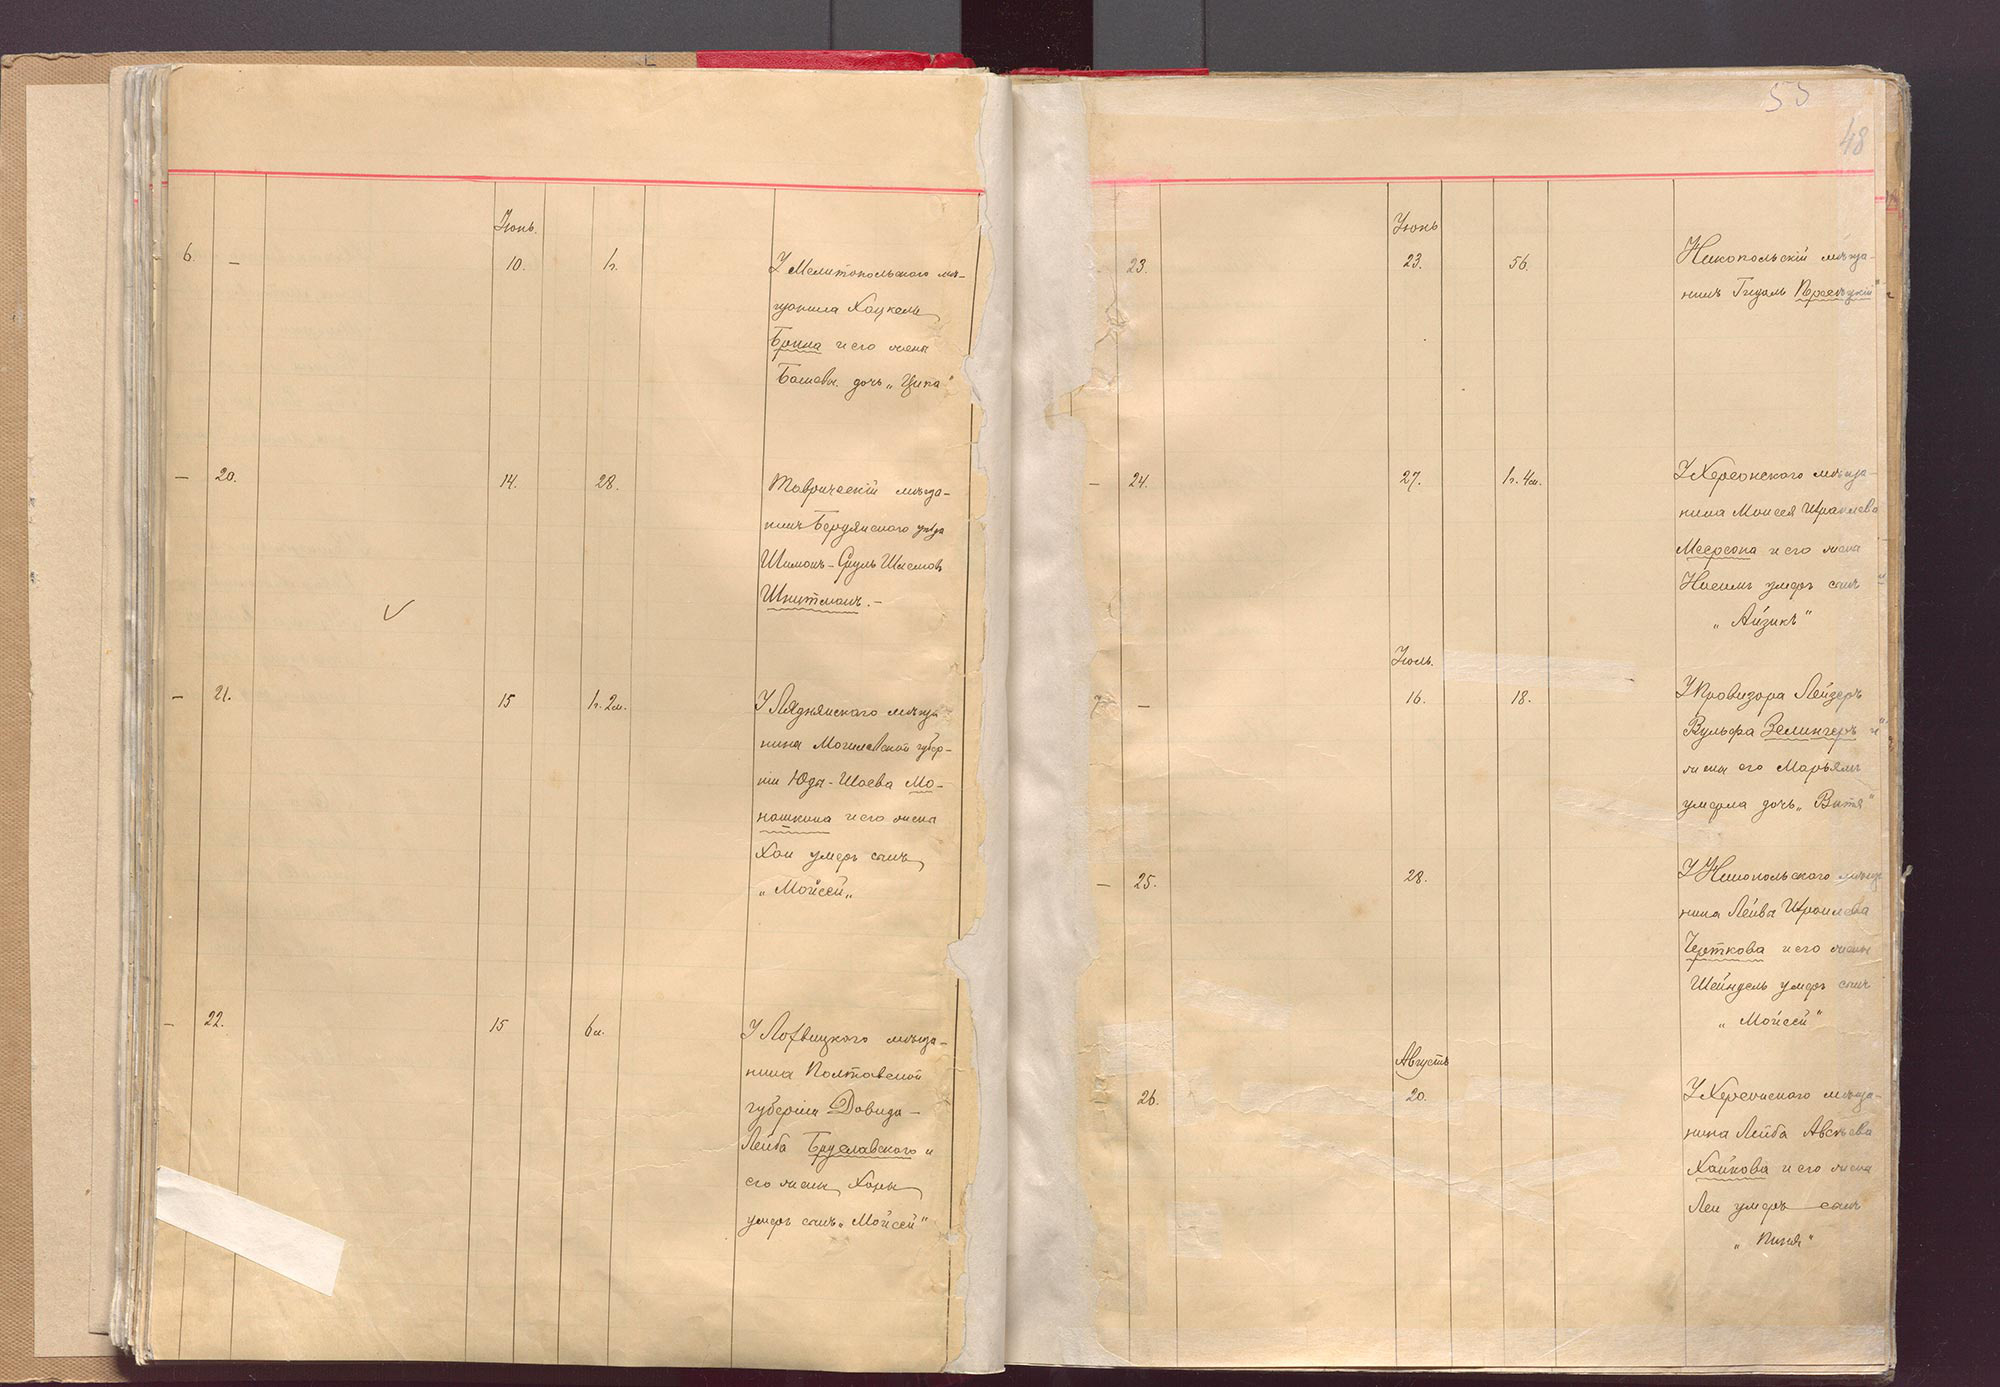 Іюнь.
6. — 10. 1 г. У Мелитопольского мѣ-
щанина Хацкеля
Брила и его жены
Башевы. дочь „Ципа"
— 20. 14. 28. Таврическій мѣща-
нинъ Бердянского уѣзда
Шимонъ-Сруль Шлемовъ
Шнитманъ. —
— 21. 15 1 г. 2 м. У Ляднянского мѣща
нина Могилевской губер-
ніи Юды-Шаева Мо-
нашкина и его жена
Хаи умеръ сынъ
„Мойсей„
— 22. 15 6 м. У Лохвицкого мѣща-
нина Полтавской
губерніи Довида-
Лейба Бруславского и
его жены Ханы
умеръ сынъ „Мойсей"
53
48
Іюнь
23. 23. 56. Никопольскій мѣща-
нинъ Гидаль
— 24. 27. 1 г. 4 м. У Херсонского мѣща-
нина Моисея Израилева
Меерсона и его жена
умеръ сынъ
„Айзикъ"
Іюль.
7 — 16. 18. У Провизора Лейзеръ
Вульфа Зелингеръ и
жена его Марьямъ
умерла дочь „Витя"
— 25. 28. У Никопольского мѣща
нина Лейбы Израилева
Черткова и его жены
Шейндель умеръ сынъ
„Мойсей"
Августъ
— 26. 20. У Херсонского мѣща-
нина Лейба Авсѣева
Хайкова и его жена
Леи умеръ сынъ
„Пиня"